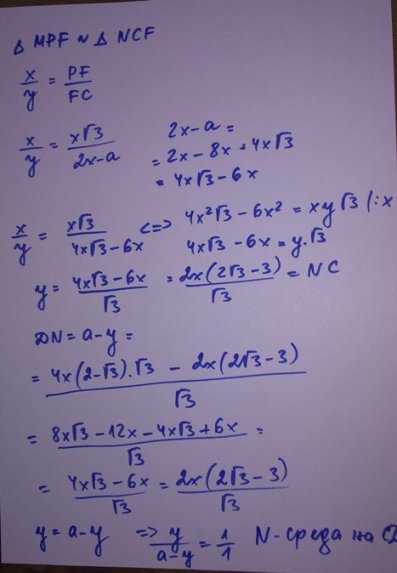 Δ MPF ~ Δ NCF
x/y = PF/FC
x/y = x√3/2x-a
2x-a =
= 2x - 8x + 4x√3
= 4x√3 - 6x
x/y = x√3/4x√3-6x <=> 4x²√3 - 6x² = xy√3 /:x
4x√3 - 6x = y.√3
y = 4x√3-6x/√3 = 2x(2√3-3)/√3 = NC
DN = a-y =
= 4x(2-√3).√3 - 2x(2√3-3)/√3
= 8x√3-12x-4x√3+6x/√3 =
= 4x√3-6x/√3 = 2x(2√3-3)/√3
y = a-y => y/a-y = 1/1 N-среда на